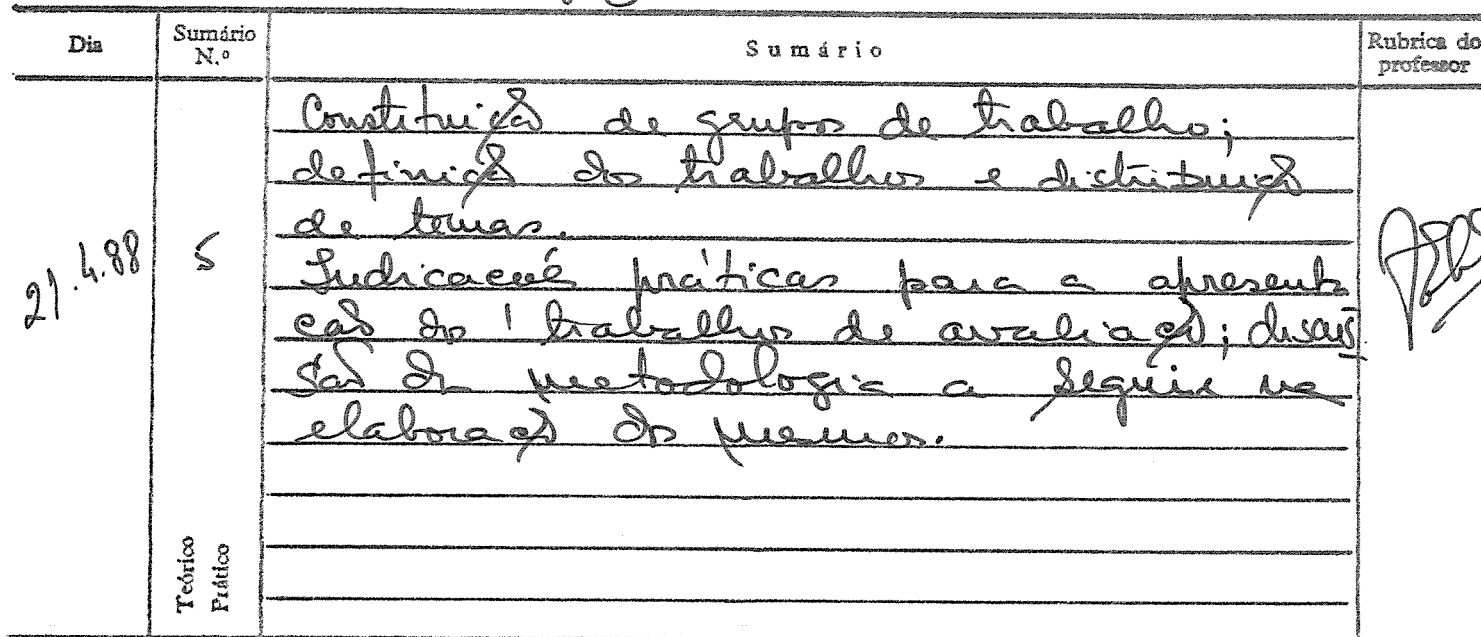 Dia
Sumário N.º
Sumário
Rubrica do professor
21.4.88
5
Constituição de grupos de trabalho;
definição dos trabalhos e distribuição
de temas.
Indicações práticas para a apresenta
ção dos trabalhos de avaliação; discus
são da metodologia a seguir na
elaboração dos mesmos.
Teórico
Prático